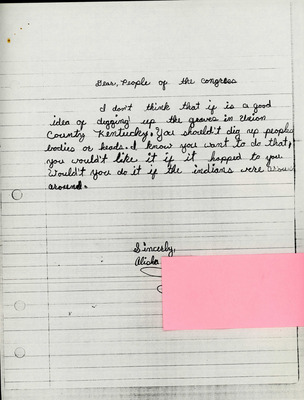 Dear, People of the Congress
I don't think that if is a good
idea of digging up the graves in Union
County Kentucky. You shouldn't dig up peoples
bodies or heads. I know you want to do that,
you would't like it if it happed to you
Would't you do it if the indians were
around.
Sincerly,